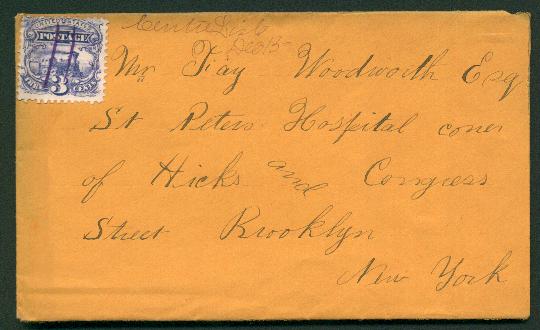 UNITED STATES
POSTAGE
3
CENTS
Dec 13
Mr Fay Woodworth Esq
St Peters Hospital coner
of Hicks and Congress
Street Brooklyn
New York